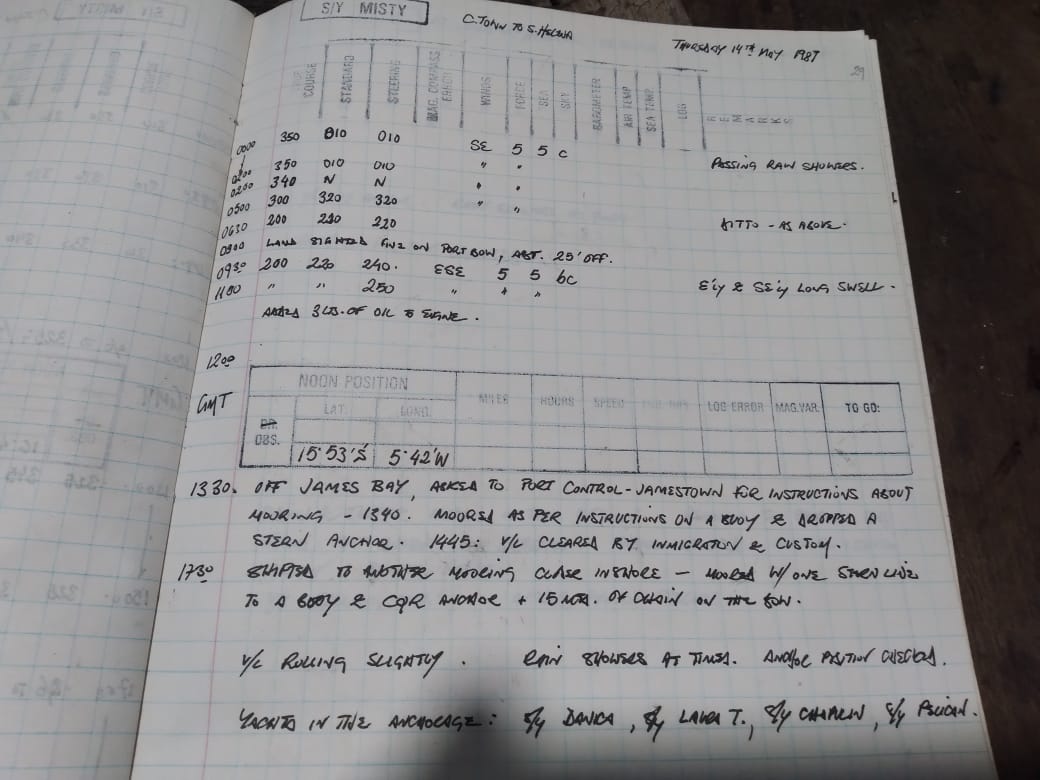 S/Y MISTY
C. TOWN TO S. HELENA
THURSDAY 14TH MAY 1987
COURSE STANDARD STEERING MAG. COMPASS ERROR WINDS FORCE SEA SKY BAROMETER AIR TEMP SEA TEMP. LOG REMARKS
0000 350 010 010 SE 5 5 c PASSING RAIN SHOWERS.
350 010 010 " "
340 N N " "
0500 300 320 320 " "
0630 200 220 220 DITTO - AS ABOVE.
0800 LAND SIGHTED FINE ON PORT BOW, ABT. 25' OFF.
0930 200 220 240. ESE 5 5 bc
1100 " " 250 " " " E'ly & SE'ly LONG SWELL.
ADDED 3 LTS. OF OIL TO ENGINE.
1200
GMT
NOON POSITION
LAT. LONG. MILES HOURS SPEED LOG ERROR MAG.VAR. TO GO:
DR.
OBS.
15°53'S 5°42'W
1330. OFF JAMES BAY, ASKED TO PORT CONTROL - JAMESTOWN FOR INSTRUCTIONS ABOUT
MOORING - 1340. MOORED AS PER INSTRUCTIONS ON A BUOY & DROPPED A
STERN ANCHOR. 1445: V/L CLEARED BY INMIGRATION & CUSTOM.
1730 SHIFTED TO ANOTHER MOORING CLOSE INSHORE - MOORED W/ ONE STERN LINE
TO A BUOY & CQR ANCHOR + 15 MTS. OF CHAIN ON THE BOW.
V/L ROLLING SLIGHTLY. RAIN SHOWERS AT TIMES. ANCHOR POSITION CHECKED.
YACHTS IN THE ANCHORAGE: S/Y DANICA, S/Y LAURA T., S/Y CHAPLIN, S/Y PELICAN.